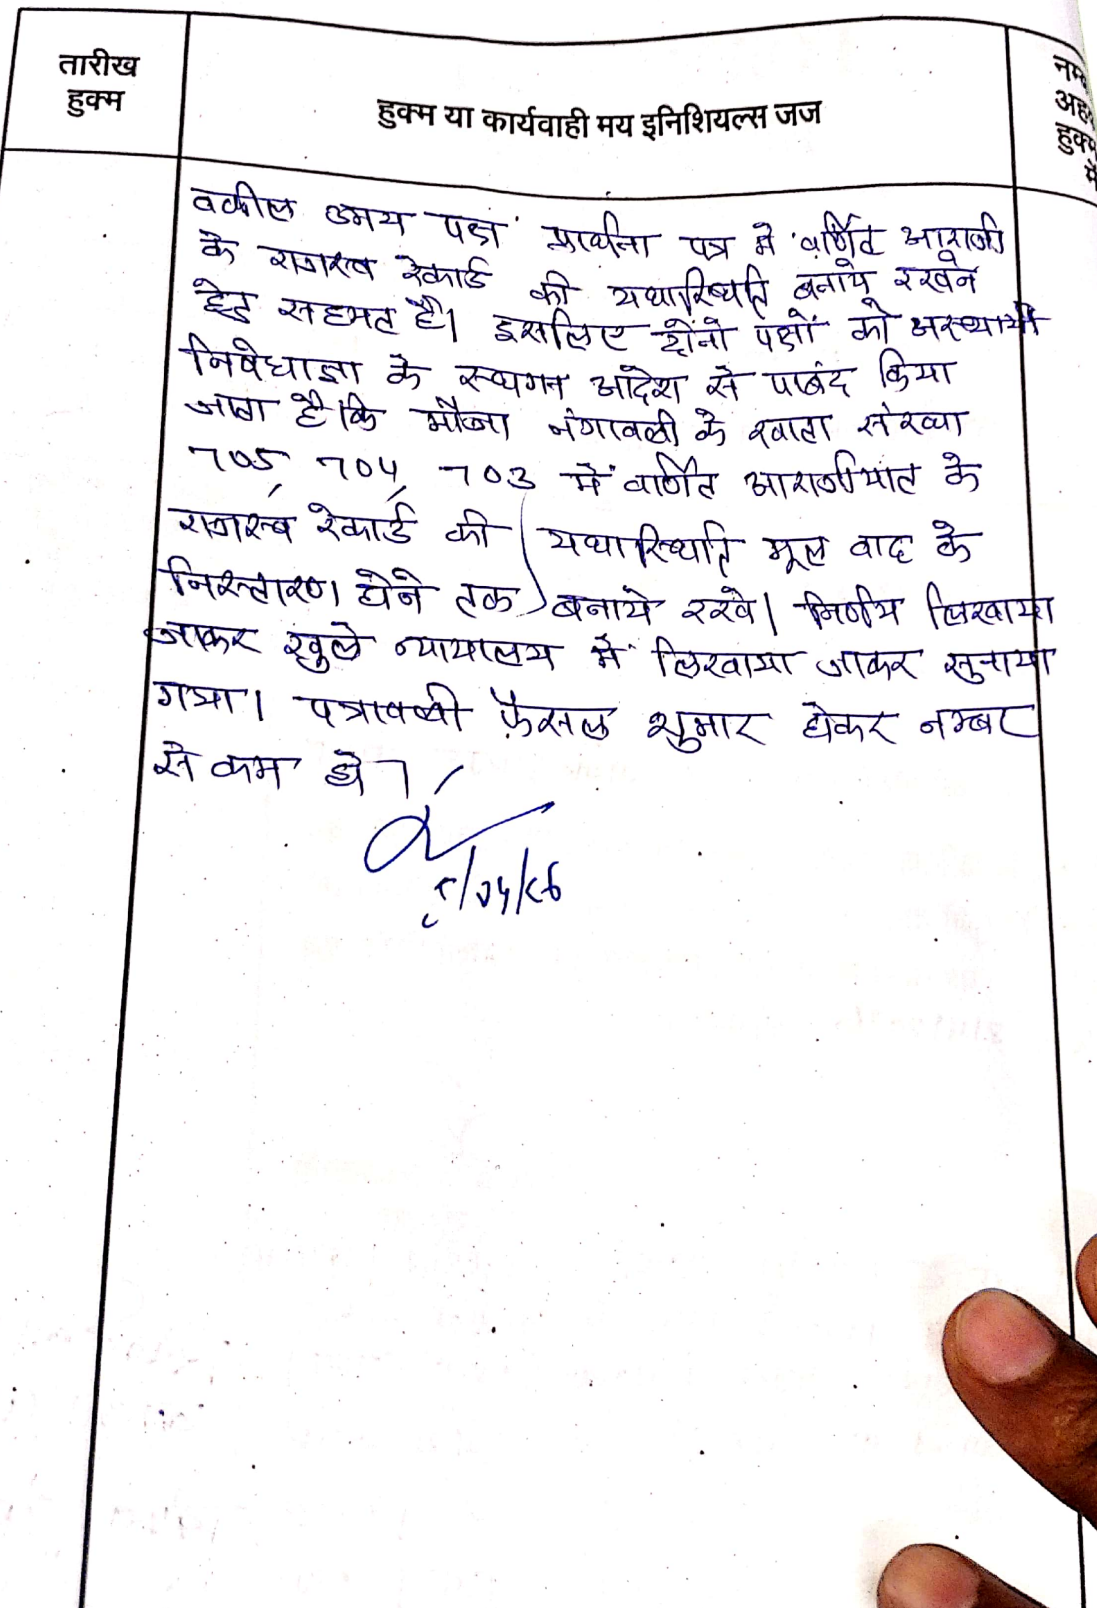 तारीख
हुक्म
हुक्म या कार्यवाही मय इनिशियल्स जज
नम्ब
अह
हुक्म
में
वकील उभय पक्ष प्रार्थना पत्र में वर्णित आराजी
के राजस्व रेकार्ड की यथास्थिति बनाये रखने
हेतु सहमत है। इसलिए दोनो पक्षों को अस्थायी
निषेधाज्ञा के स्थगन आदेश से पाबंद किया
जाता है कि मौजा नंगावली के खाता संख्या
705, 704, 703 में वर्णित आराजीयात के
राजस्व रेकार्ड की यथास्थिति मूल वाद के
निस्तारण होने तक बनाये रखे। निर्णय लिखाया
जाकर खुले न्यायालय में लिखाया जाकर सुनाया
गया। पत्रावली फैसल शुमार होकर नम्बर
से कम हो।